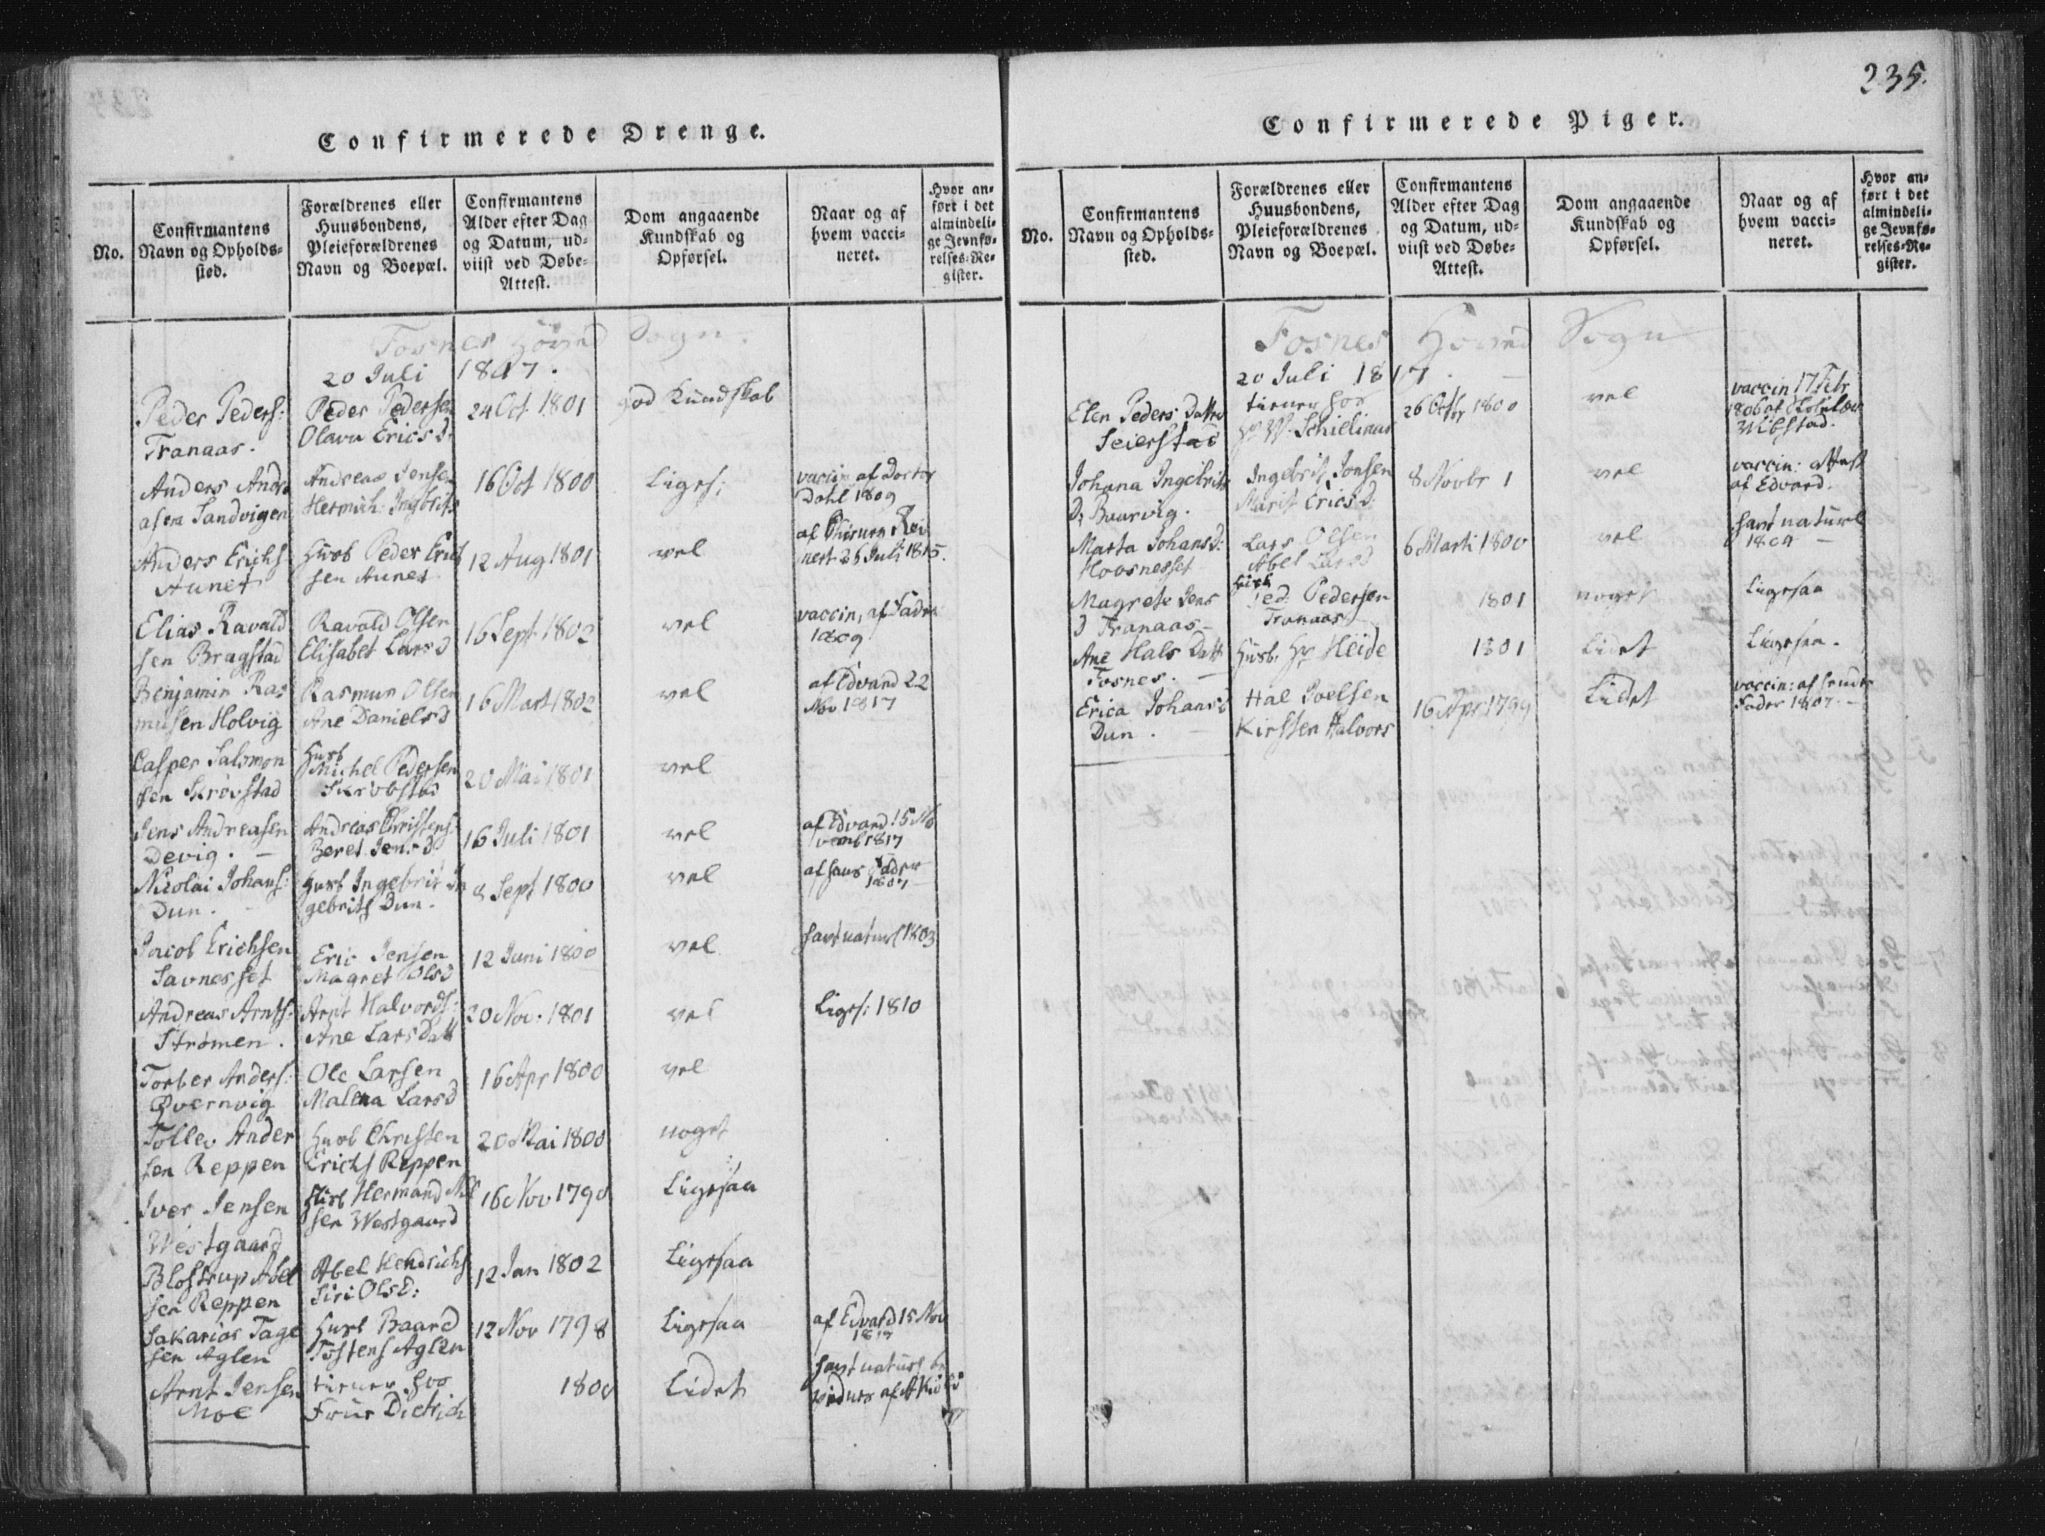 235.
Confirmerede Drenge.
No.
Confirmantens
Navn og Opholds-
sted.
Forældrenes eller
Huusbondens,
Pleieforældrenes
Navn og Boepæl.
Confirmantens
Alder efter Dag
og Datum, ud-
viist ved Døbe-
Attest.
Dom angaaende
Kundskab og
Opførsel.
Naar og af
hvem vacci-
neret.
Hvor an-
ført i det
almindeli-
ge Jevnfø-
relses-Re-
gister.
Fosnes Hoved Sogn.
20 Juli 1817.
Peder Peders:
Tranaas.
Peder Pedersen
Olava Erics D:
24 Oct 1801
god Kundskab
Anders Andre
asen Sandvigen
Andreas Jensen
16 Oct 1800
Liges:
vaccin af Doctor
Dahl 1809
Anders Erichs
Aunet
Husb Peder Erich
sen Aunet
12 Aug 1801
vel
af Chirurg
25 Juli 1815.
Elias Ravald
sen Bragstad
Ravald Olsen
Elisabet Lars D
16 Sept 1802
vel
vaccin, af Fader
1809
Benjamin Ras
musen Holvig
Rasmus Olsen
Ane Daniels D
16 Mart 1802
vel
af Edvard 22
Nov 1817
Casper Salomon
sen Skrøvstad
Husb
Michel Pedersen
Skrøvstad
20 Mai 1801
vel
Jens Andreasen
Devig.
Andreas Christens
Beret Jens D
16 Juli 1801
vel
af Edvard 15 No
vemb 1817
Nicolai Johans:
Dun.
Husb Ingebrit In
gebrits Dun.
8 Sept 1800
vel
af hans Fader
1807
Jacob Erichsen
Savnesset
Eric Jensen
Magret Ols D
12 Juni 1800
vel
havt naturl 1803
Andreas Arnts:
Strømen.
Arnt Halvords:
Ane Lars Datt
20 Nov. 1801
vel
Ligs: 1810
Torber Anders:
Qvernvig
Ole Larsen
Malena Lars D
16 Apr 1800
vel
Tollev Ander
sen Reppen
Husb Christen
Erichs Reppen
20 Mai 1800
noget
Iver Jensen
Westgaard
Husb Hermand Nil
sen Westgaard
16 Nov 1790
Ligesaa
Blostrup Abel
sen Reppen
Abel Hendrichs
Siri Ols D:
12 Jan 1802
Ligesaa
Sakarias Tage
sen Aglen
Husb Baard
Tostens Aglen
12 Nov 1798
Ligesaa
af Edvard 15 Nov
1817
Arnt Jensen
Moe
tiener hos
Frue Dietrich
1800
Lidet
havt naturl be
vidnes af
Confirmerede Piger.
No.
Confirmantens
Navn og Opholds-
sted.
Forældrenes eller
Huusbondens,
Pleieforældrenes
Navn og Boepæl.
Confirmantens
Alder efter Dag
og Datum, ud-
viist ved Døbe-
Attest.
Dom angaaende
Kundskab og
Opførsel.
Naar og af
hvem vacci-
neret.
Hvor an-
ført i det
almindeli-
ge Jevnfø-
relses-Re-
gister.
Fosnes Hoved Sogn
20 Juli 1817.
Elen Peders Datter
Seierstad
tiener hos
26 Octbr 1800
vel
vaccin 17 Febr
1806 af Skolelær
Wibstad.
Johana Ingebrits
D: Baarvig.
Ingebrit Jonsen
Marit Erics D:
8 Novbr 1
vel
vaccin: attest
af Edvard.
Marta Johans D:
Hovsnesset
Lars Olsen
Abel Lars D
6 Marti 1800
vel
havt naturl
1804
Magrete Jens
D Tranaas
Husb
Ped. Pedersen
Tranaas
1801
noget
Ligesaa
Ane Hals Datt
Fosnes.
Husb. Hr Heide
1801
Lidet
Ligesaa.
Erica Johans D
Dun.
Hal Joelsen
Kirsten Halvors
16 Apr 1799
Lidet
vaccin: af hendes
Fader 1807.